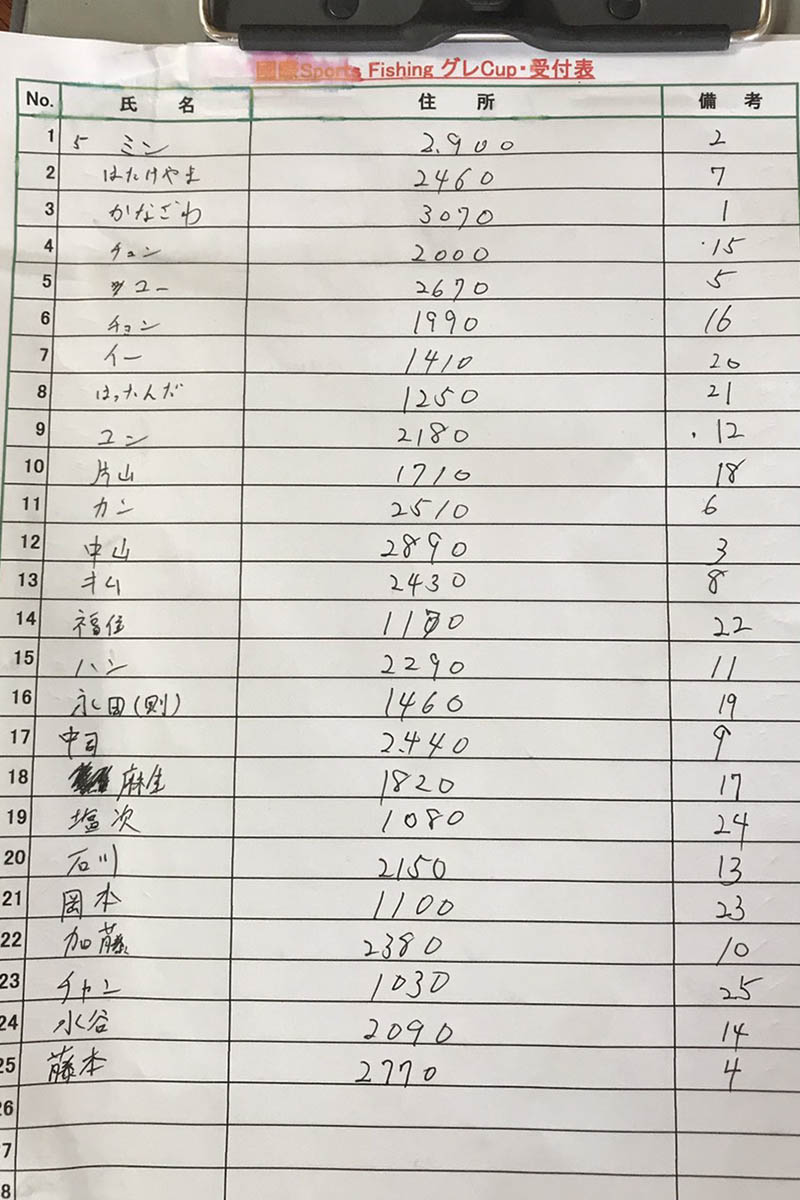 國際Sports Fishing グレCup・受付表
No. 氏 名 住 所 備 考
1 5 ミン 2.900 2
2 はたけやま 2460 7
3 かなざわ 3070 1
4 チュン 2000 15
5 ユー 2670 5
6 チョン 1990 16
7 イー 1410 20
8 はったんだ 1250 21
9 ユン 2180 12
10 片山 1710 18
11 カン 2510 6
12 中山 2890 3
13 キム 2430 8
14 福住 22
15 ハン 2290 11
16 永田(則) 1460 19
17 中司 2.440 9
18 麻生 1820 17
19 塩次 1080 24
20 石川 2150 13
21 岡本 1100 23
22 加藤 2380 10
23 チャン 1030 25
24 水谷 2090 14
25 藤本 2770 4
26
7
8